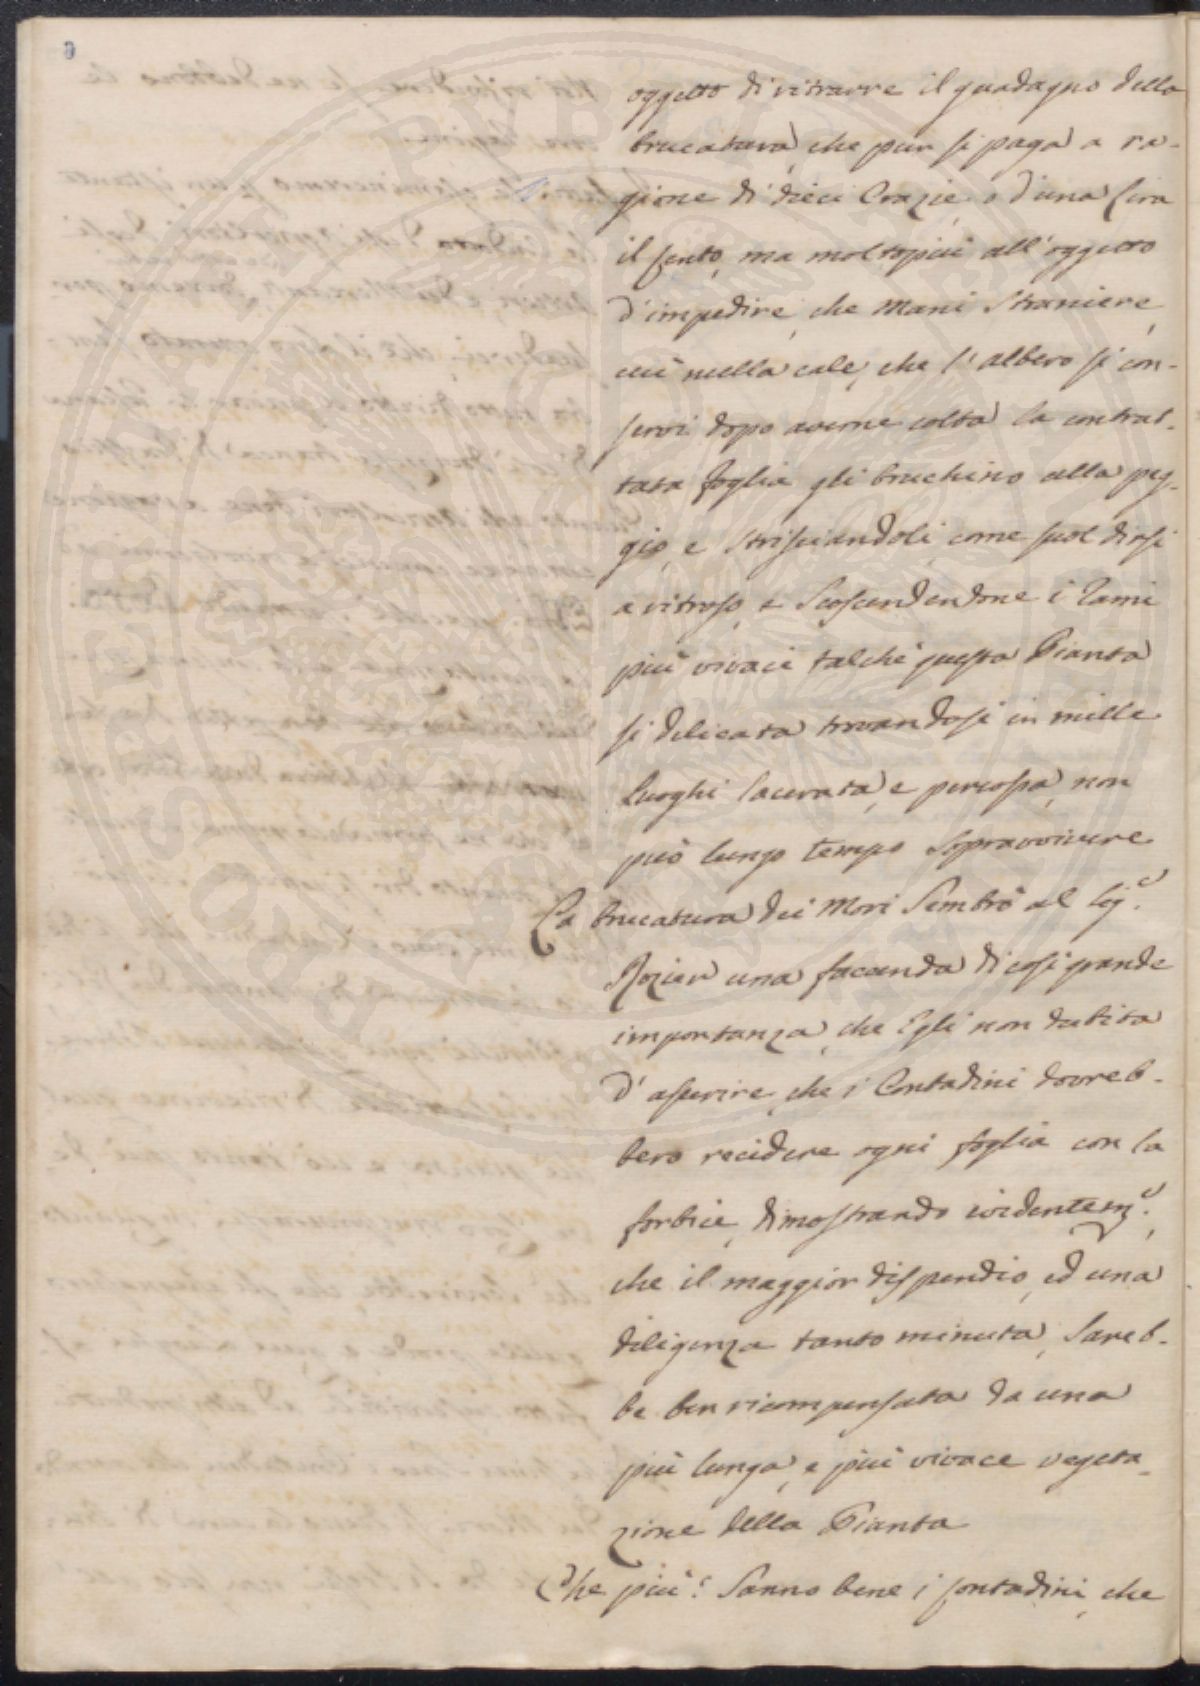 oggetto di ritrarre il guadagno della
brucatura, che pur si paga a ra-
gione di dieci Crazie, o d'una Lira
il sento, ma molto più all'oggetto
d'impedire, che Mani Straniere,
cui nulla cale, che l'albero si con-
servi dopo averne colta la contrat-
tata foglia gli bruchino alla peg-
gio, e strisciandoli, come suol dirsi
a ritroso, e Scoscendendone i Rami
più vivaci talchè questa Pianta
si delicata trovandosi in mille
Luoghi lacerata, e percossa, non
può lungo tempo sopravvivere
La brucatura dei Mori Sembrò al Sig.e
Rozier una faccenda di così grande
importanza, che Egli non dubita
d'asserire, che i Contadini dovreb-
bero recidere ogni foglia con la
forbice, dimostrando evidentem.e,
che il maggior dispendio, ed una
diligenza tanto minuta, Sareb-
be ben ricompensata da una
più lunga, e più vivace vegeta-
zione della Pianta
Che più? Sanno bene i Contadini, che